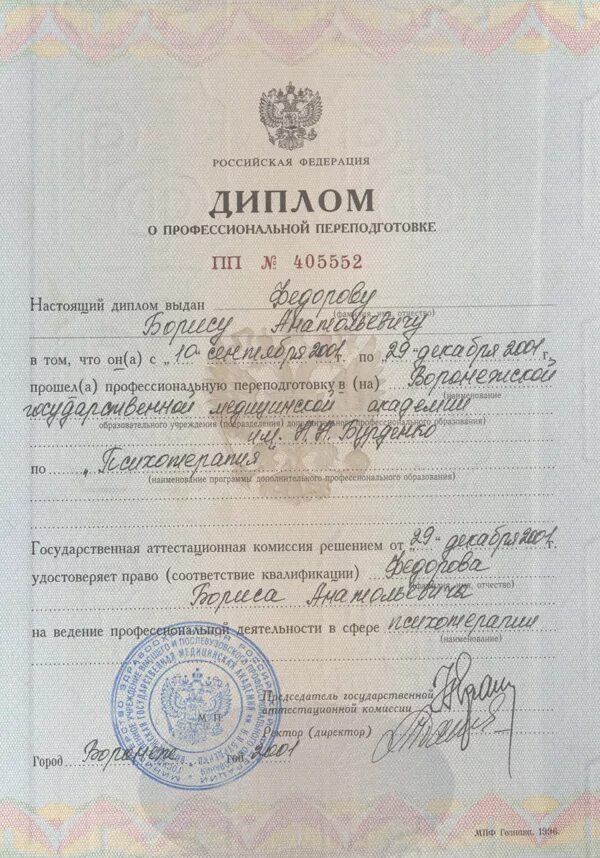 РОССИЙСКАЯ ФЕДЕРАЦИЯ
ДИПЛОМ
О ПРОФЕССИОНАЛЬНОЙ ПЕРЕПОДГОТОВКЕ
ПП № 405552
Настоящий диплом выдан Федорову
(фамилия, имя, отчество)
Борису Анатольевичу
в том, что он(а) с „10" сентября 2001 г. по „29" декабря 2001 г.
прошел(а) профессиональную переподготовку в (на) Воронежской
(наименование
государственной медицинской академии
образовательного учреждения (подразделения) дополнительного профессионального образования)
им. Н.Н. Бурденко
по „Психотерапия"
(наименование программы дополнительного профессионального образования)
Государственная аттестационная комиссия решением от „29" декабря 2001 г.
удостоверяет право (соответствие квалификации) Федорова
(фамилия, имя, отчество)
Бориса Анатольевича
на ведение профессиональной деятельности в сфере психотерапии
(наименование)
Председатель государственной
аттестационной комиссии
М.П.
Ректор (директор)
Город Воронеж год 2001
МПФ Гознака. 1996.